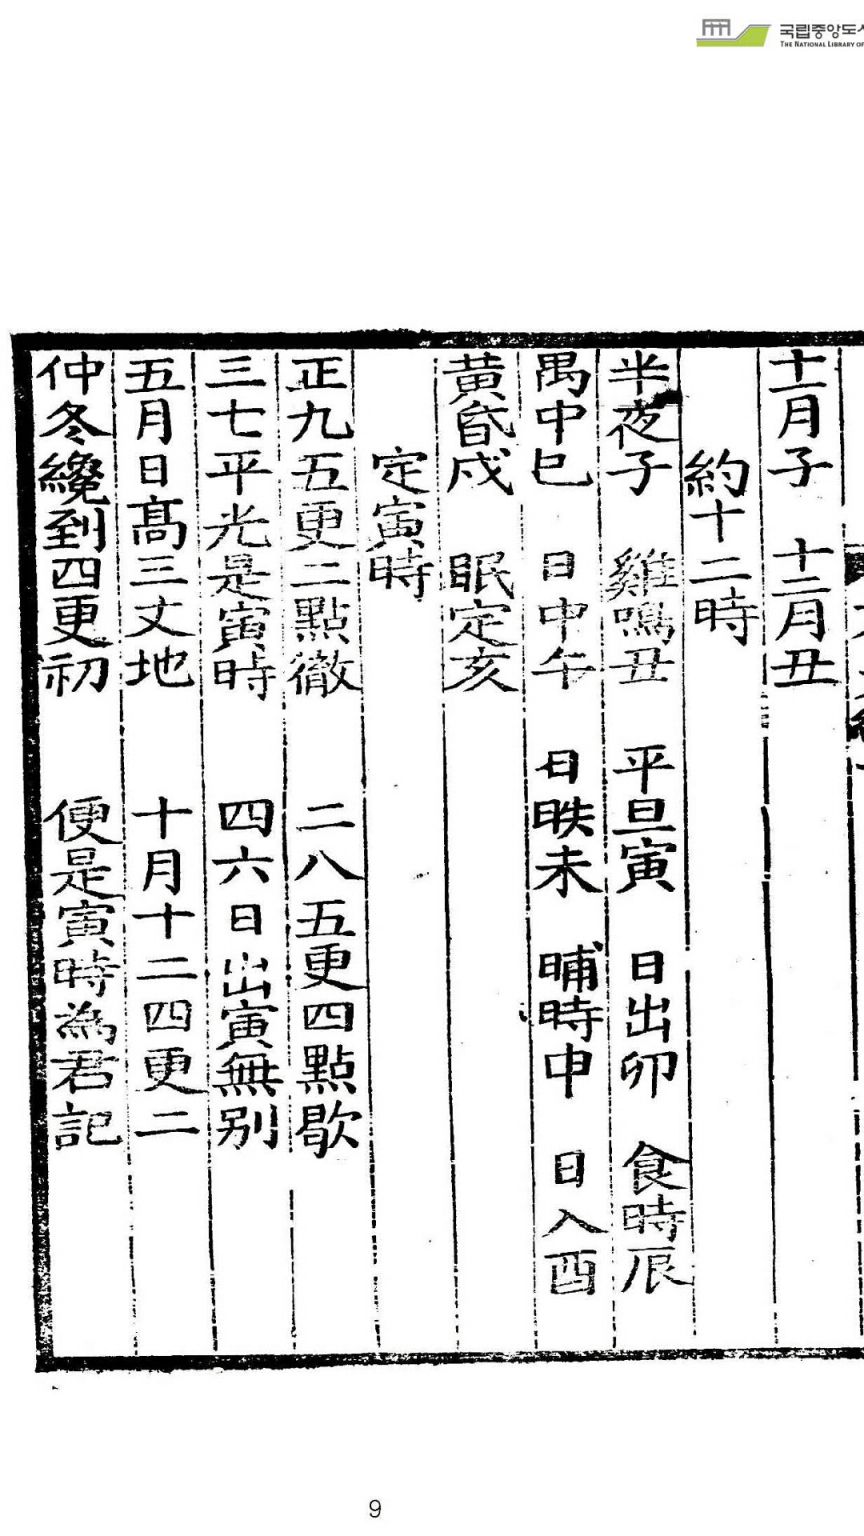 국립중앙도
THE NATIONAL LIBRARY OF
十一月子　十二月丑
約十二時
半夜子　雞鳴丑　平旦寅　日出卯　食時辰
禺中巳　日中午　日昳未　晡時申　日入酉
黃昏戌　眠定亥
定寅時
正九五更二點徹　二八五更四點歇
三七平光是寅時　四六日出寅無別
五月日髙三丈地　十月十二四更二
仲冬纔到四更初　便是寅時為君記
9